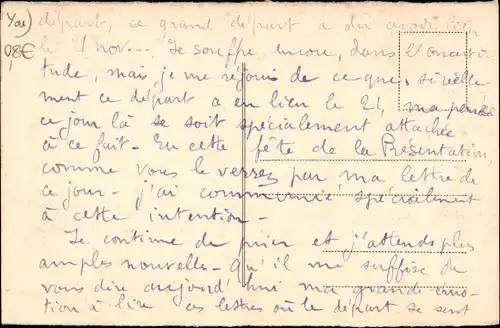 You)
08€
départ, ce grand départ a dû avoir lieu
le 21 nov... Je souffre encore, dans l'incerti-
tude, mais je me réjouis de ce que, si réelle
ment ce départ a eu lieu le 21, ma pensée
ce jour là se soit spécialement attachée
à ce fait - En cette fête de la Présentation,
comme vous le verrez par ma lettre de
ce jour - j'ai communié spécialement
à cette intention -
Je continue de prier et j'attends plus
amples nouvelles - Qu'il me suffise de
vous dire aujourd'hui ma grande émo-
tion à lire ces lettres où le départ se sent